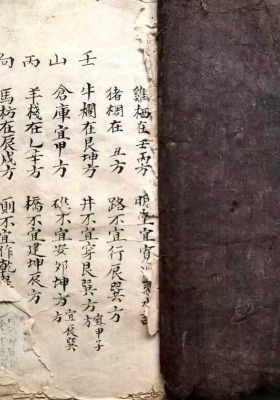 壬山丙向
雞栖在壬丙方 明堂宜寅
豬椆在丑方 路不宜行辰巽方
牛欄在艮坤方 井不宜穿艮巽方 宜甲子方
倉庫宜甲方 碓不宜安卯坤方 宜辰巽方
羊棧在乙辛方 橋不宜建坤辰方
馬枋在辰戌方 廁不宜作乾